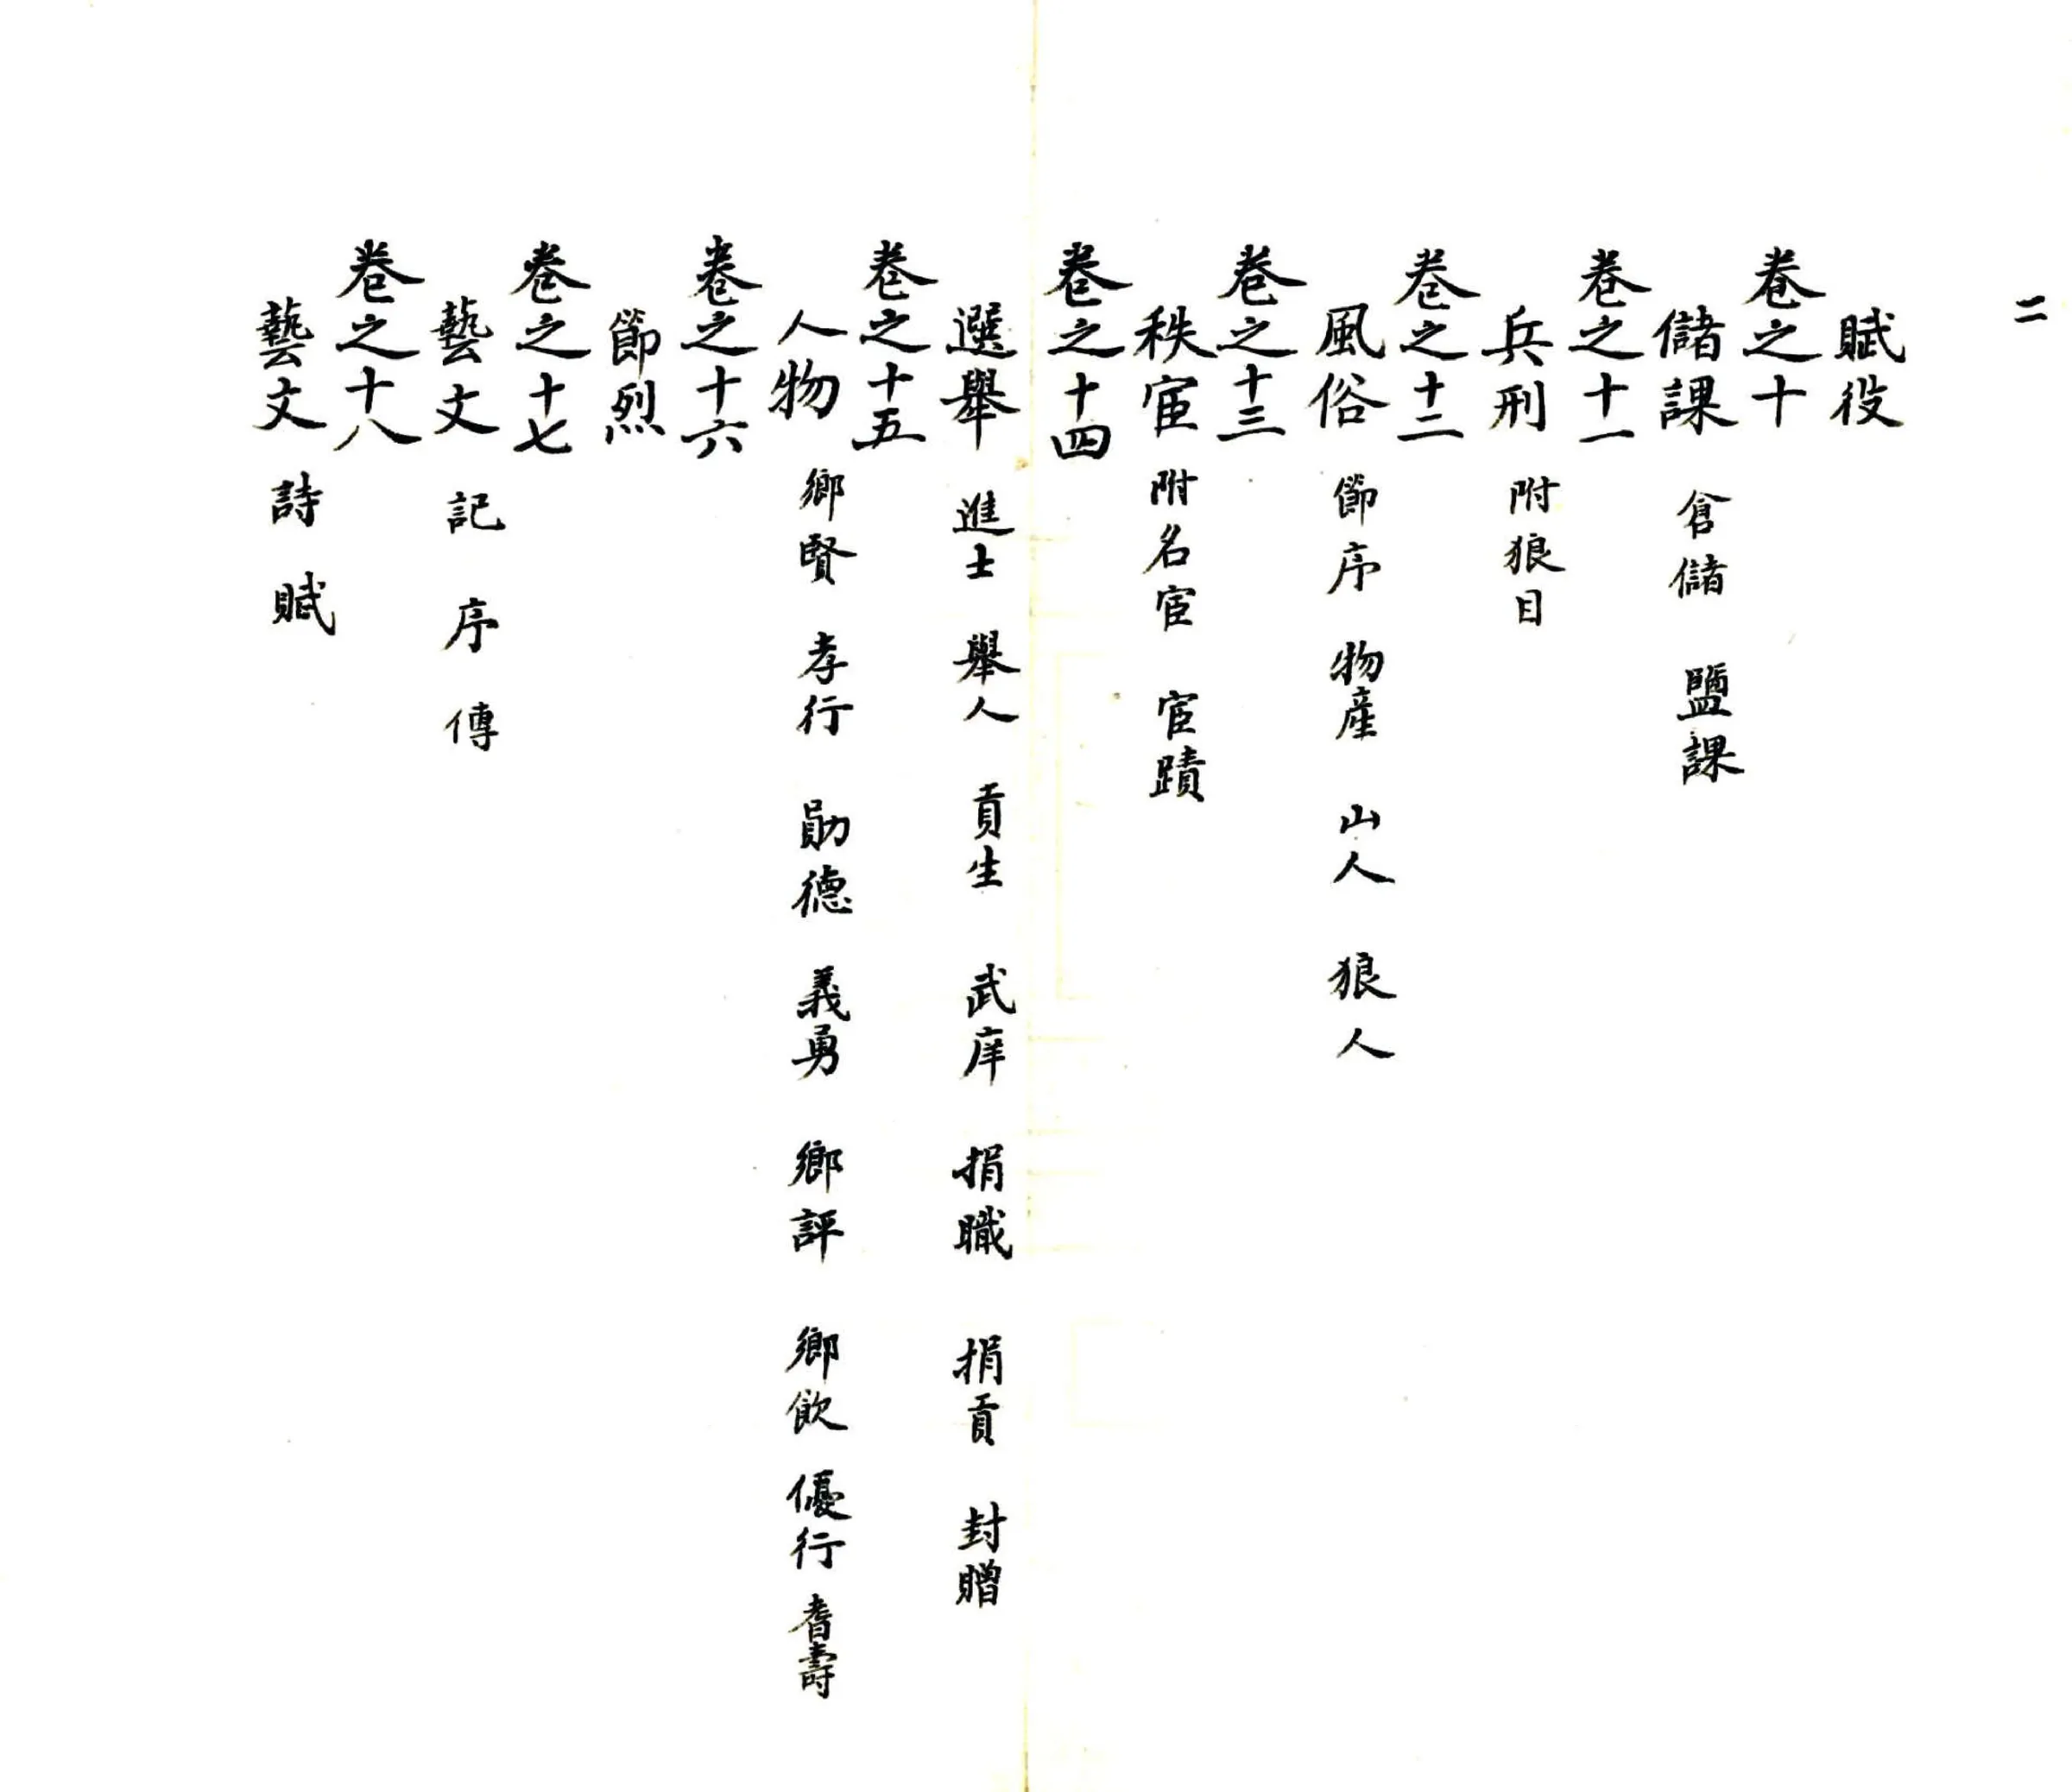 二
賦役
卷之十
儲課 倉儲 鹽課
卷之十一
兵刑 附狼目
卷之十二
風俗 節序 物產 山人 狼人
卷之十三
秩宦 附名宦 宦蹟
卷之十四
選舉 進士 舉人 貢生 武庠 捐職 捐貢 封贈
卷之十五
人物 鄉賢 孝行 勛德 義勇 鄉評 鄉飲 優行 耆壽
卷之十六
節烈
卷之十七
藝文 記 序 傳
卷之十八
藝文 詩 賦